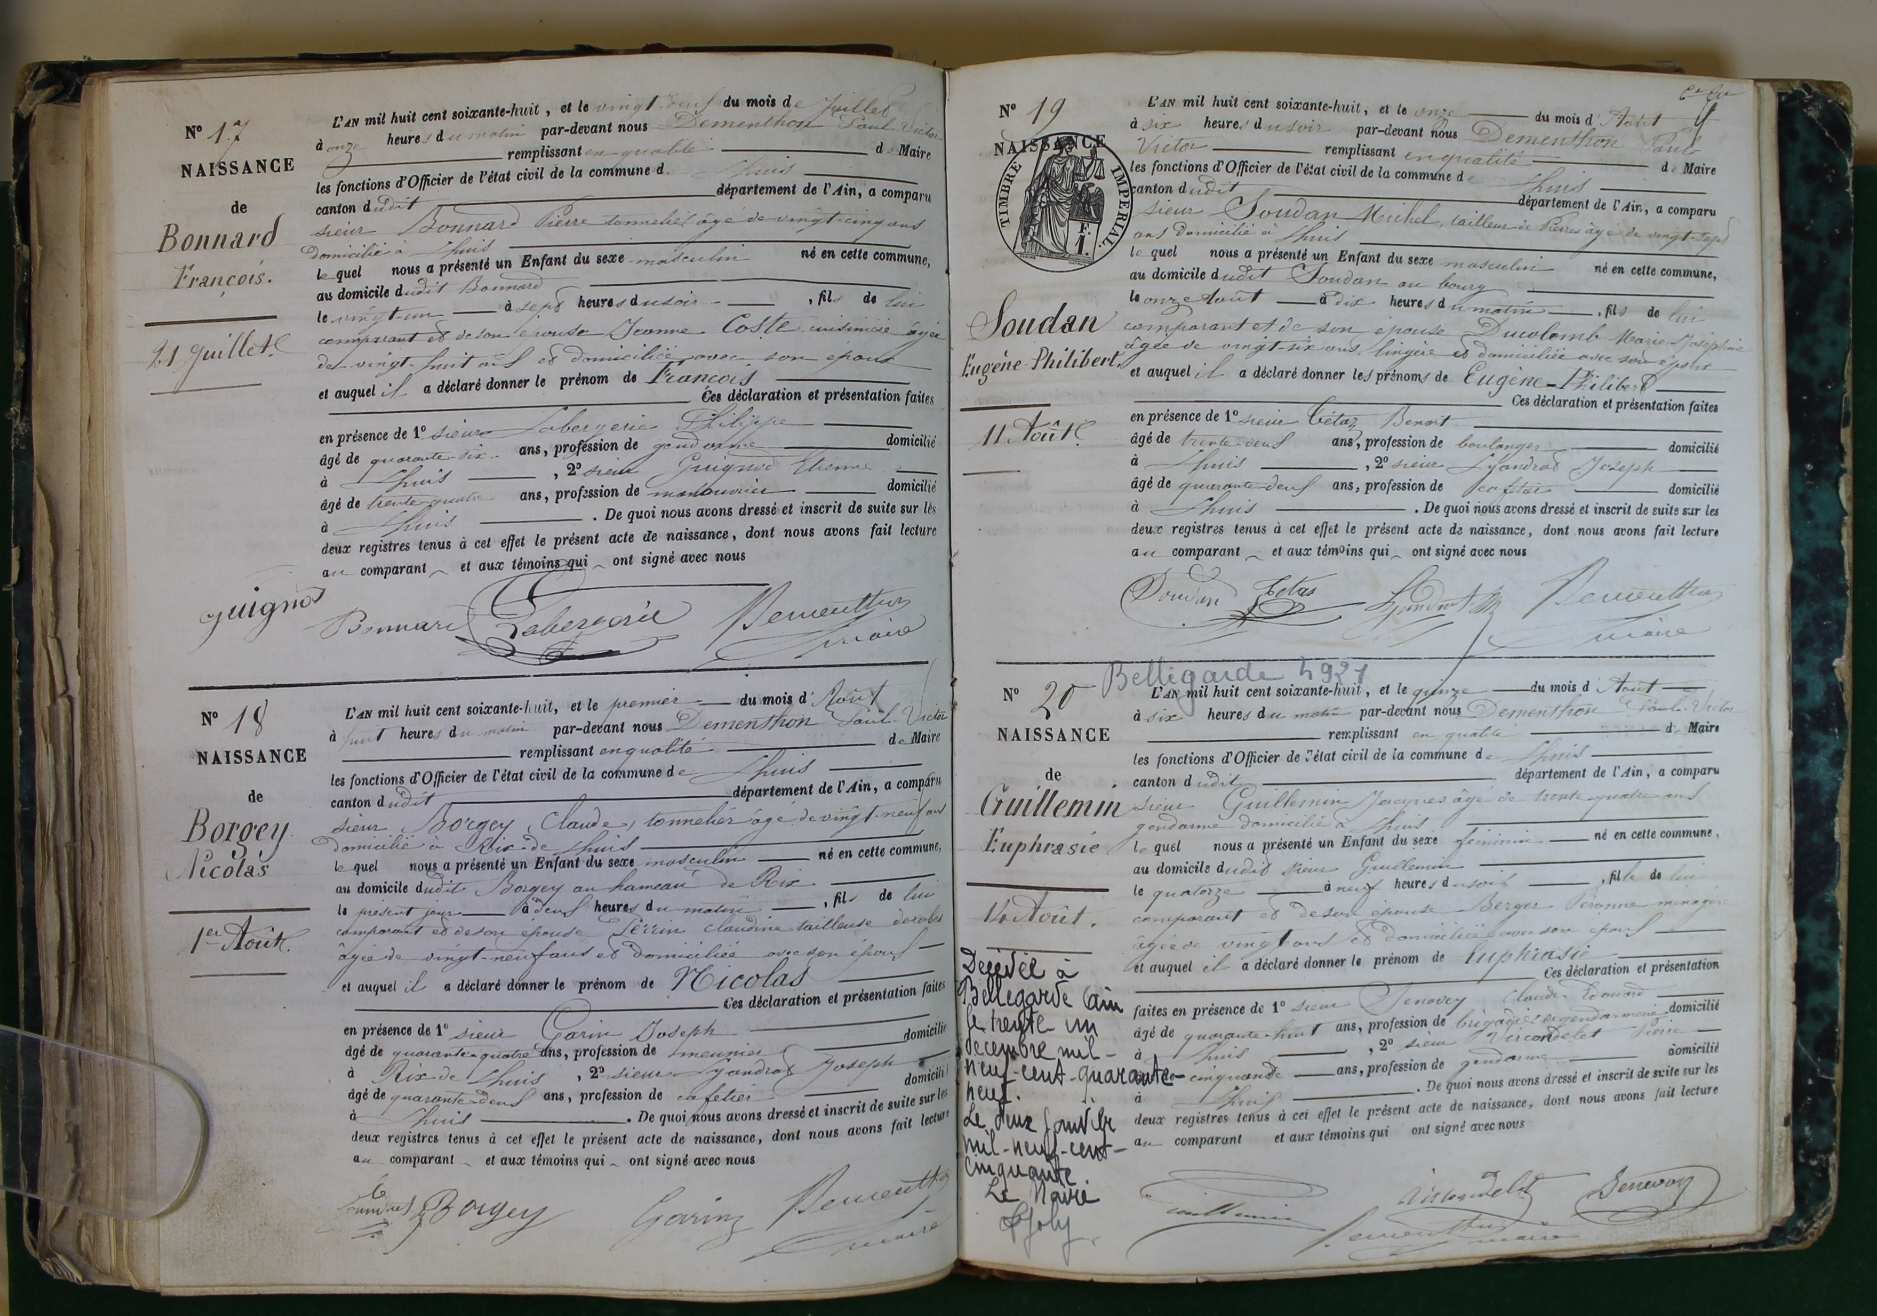 N° 17
NAISSANCE
de
Bonnard
François.
21 Juillet.
L'AN mil huit cent soixante-huit, et le vingt-deux du mois de Juillet
à onze heures du matin par-devant nous Dementhon Paul Victor
remplissant en qualité de Maire
les fonctions d'Officier de l'état civil de la commune de Lhuis
canton dudit département de l'Ain, a comparu
sieur Bonnard Pierre tonnelier âgé de vingt-cinq ans
domicilié à Lhuis
lequel nous a présenté un Enfant du sexe masculin né en cette commune,
au domicile dudit Bonnard
le vingt-un à sept heures du soir, fils de lui
comparant et de son épouse Jeanne Coste cuisinière âgée
de vingt-huit ans et domiciliée avec son époux
et auquel il a déclaré donner le prénom de François
Ces déclaration et présentation faites
en présence de 1° sieur Labergerie Philippe
âgé de quarante-six ans, profession de gendarme domicilié
à Lhuis, 2° sieur Guignod Etienne
âgé de trente-quatre ans, profession de manouvrier domicilié
à Lhuis. De quoi nous avons dressé et inscrit de suite sur les
deux registres tenus à cet effet le présent acte de naissance, dont nous avons fait lecture
au comparant et aux témoins qui ont signé avec nous
Guignod Bonnard Labergerie Dementhon
maire
N° 18
NAISSANCE
de
Borgey
Nicolas
1er Août.
L'AN mil huit cent soixante-huit, et le premier du mois d'Août
à huit heures du matin par-devant nous Dementhon Paul-Victor
remplissant en qualité de Maire
les fonctions d'Officier de l'état civil de la commune de Lhuis
canton dudit département de l'Ain, a comparu
sieur Borgey Claude, tonnelier âgé de vingt-neuf ans
domicilié à Rix-de Lhuis
lequel nous a présenté un Enfant du sexe masculin né en cette commune,
au domicile dudit Borgey au hameau de Rix
le présent jour à deux heures du matin, fils de lui
comparant et de son épouse Perrin Claudine tailleuse de robes
âgée de vingt-neuf ans et domiciliée avec son époux
et auquel il a déclaré donner le prénom de Nicolas
Ces déclaration et présentation faites
en présence de 1° sieur Garin Joseph domicilié
âgé de quarante-quatre ans, profession de meunier
à Rix de Lhuis, 2° sieur Lyandrod Joseph
âgé de quarante-deux ans, profession de cafetier domicilié
à Lhuis. De quoi nous avons dressé et inscrit de suite sur les
deux registres tenus à cet effet le présent acte de naissance, dont nous avons fait lecture
au comparant et aux témoins qui ont signé avec nous
Borgey Garin Dementhon
maire
N° 19
NAISSANCE
TIMBRE IMPÉRIAL.
F.
1.
Soudan
Eugène-Philibert.
11 Août.
L'AN mil huit cent soixante-huit, et le onze du mois d'Août
à six heures du soir par-devant nous Dementhon Paul
Victor remplissant en qualité de Maire
les fonctions d'Officier de l'état civil de la commune de Lhuis
canton dudit département de l'Ain, a comparu
sieur Soudan Michel, tailleur de Pierres âgé de vingt-sept
ans domicilié à Lhuis
lequel nous a présenté un Enfant du sexe masculin né en cette commune,
au domicile dudit Soudan au bourg
le onze Août à dix heures du matin, fils de lui
comparant et de son épouse Ducolomb Marie-Joséphine
âgée de vingt six ans lingère et domiciliée avec son époux
et auquel il a déclaré donner les prénoms de Eugène-Philibert
Ces déclaration et présentation faites
en présence de 1° sieur Tétaz Benoit
âgé de trente-deux ans, profession de boulanger domicilié
à Lhuis, 2° sieur Lyandrod Joseph
âgé de quarante-deux ans, profession de cafetier domicilié
à Lhuis. De quoi nous avons dressé et inscrit de suite sur les
deux registres tenus à cet effet le présent acte de naissance, dont nous avons fait lecture
au comparant et aux témoins qui ont signé avec nous
Soudan Tetas Dementhon
maire
Bellegarde 4927
N° 20
NAISSANCE
de
Guillemin
Euphrasie
14 Août.
L'AN mil huit cent soixante-huit, et le quinze du mois d'Août
à six heures du matin par-devant nous Dementhon Paul-Victor
remplissant en qualité de Maire
les fonctions d'Officier de l'état civil de la commune de Lhuis
canton dudit département de l'Ain, a comparu
sieur Guillemin Jacques âgé de trente-quatre ans
gendarme domicilié à Lhuis
lequel nous a présenté un Enfant du sexe féminin né en cette commune,
au domicile dudit sieur Guillemin
le quatorze à neuf heures du soir, fille de lui
comparant et de son épouse Berger Péronne ménagère
âgée de vingt ans et domiciliée avec son époux
et auquel il a déclaré donner le prénom de Euphrasie
Ces déclaration et présentation
faites en présence de 1° sieur Claude Edouard
âgé de quarante-huit ans, profession de brigadier de gendarmerie domicilié
à Lhuis, 2° sieur Vircondelet Pierre
cinquante ans, profession de gendarme domicilié
à Lhuis. De quoi nous avons dressé et inscrit de suite sur les
deux registres tenus à cet effet le présent acte de naissance, dont nous avons fait lecture
au comparant et aux témoins qui ont signé avec nous
Guillemin Vircondelet
Dementhon maire
Décédée à
Bellegarde Ain
le trente un
décembre mil-
neuf-cent-quarante-
neuf.
Le deux Janvier
mil-neuf-cent-
cinquante.
Le Maire
Joly